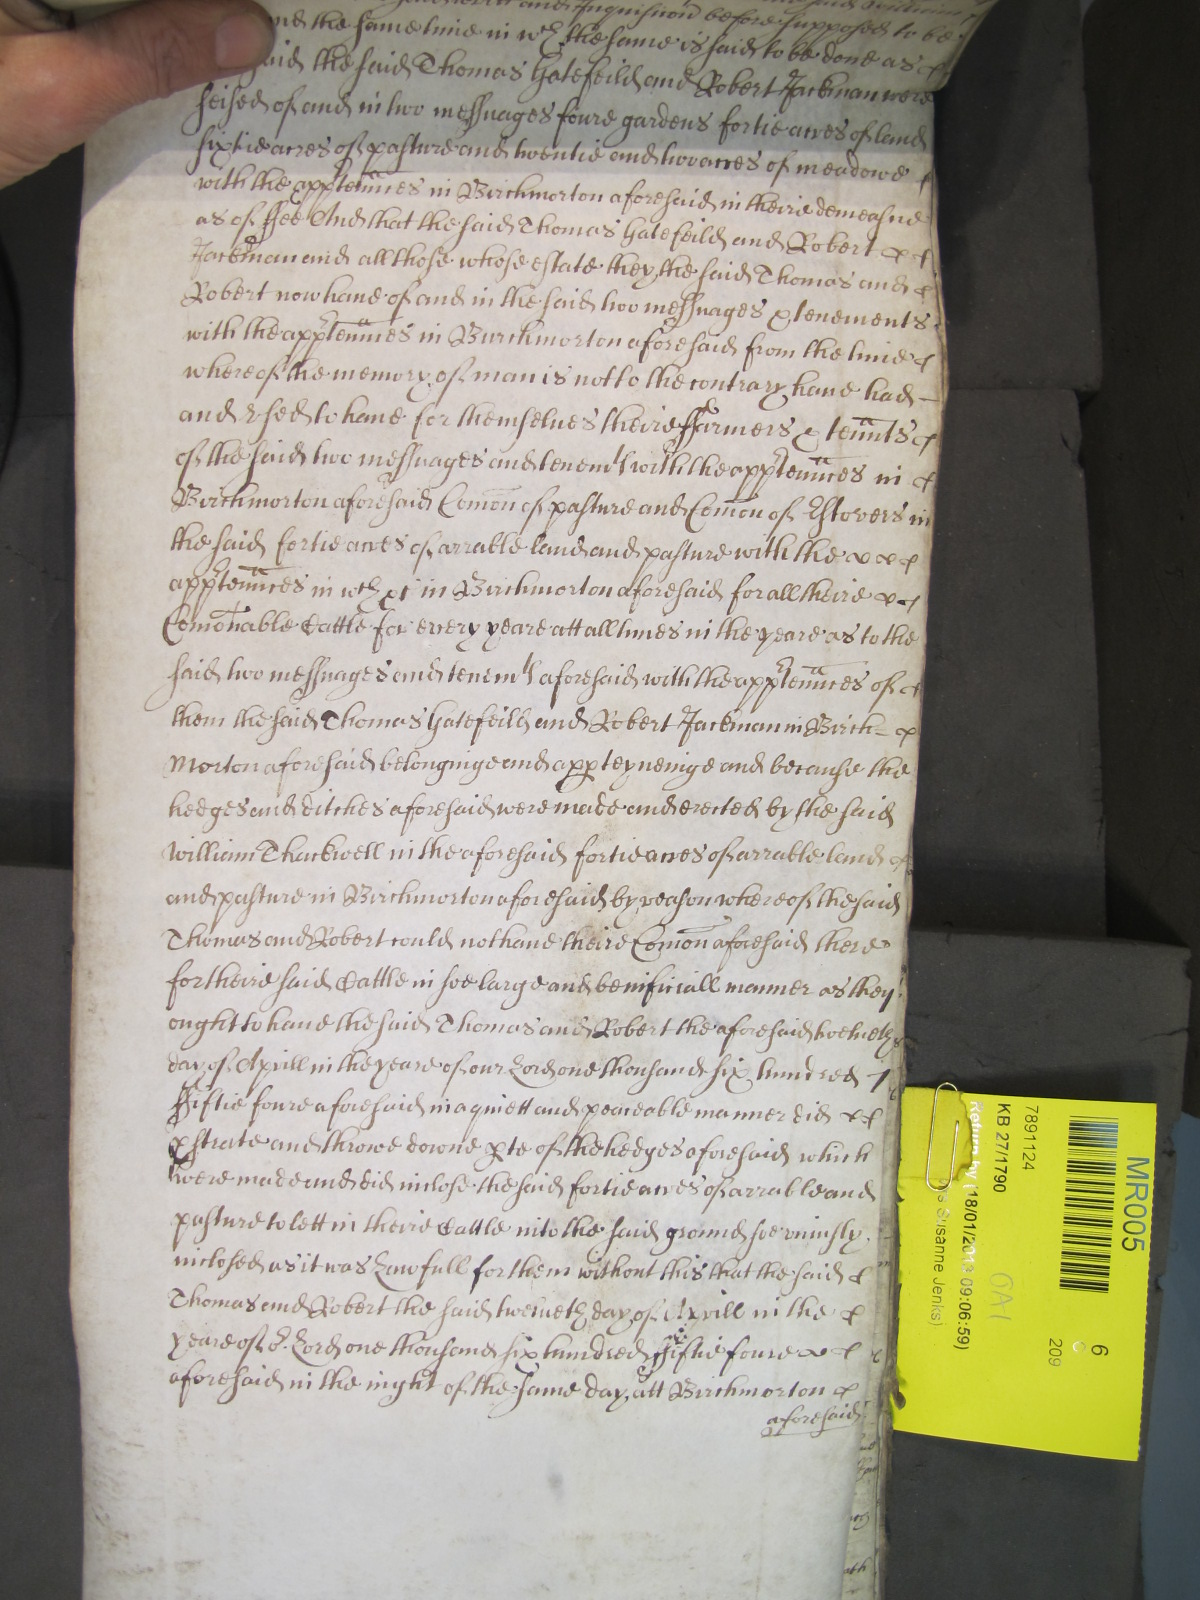 and Inquisicon before supposed to be
and the same time in wch the same is said to be done as
said the said Thomas Hatefeild and Robert Jackman were
seised of and in two messuages foure gardens fortie acres of land
sixtie acres of pasture and twentie and two acres of meadowe
with the appurtennces in Birchmorton aforesaid in theire demeasne
as of ffee And that the said Thomas Hatefeild and Robert
Jackman and all those whose estate they the said Thomas and
Robert now have of and in the said two messuages & tenements
with the appurtennces in Burchmorton aforesaid from the time
whereof the memory of man is not to the contrary have had
and vsed to have for themselves theire ffarmers & tennts
of the said two messuages and tenemts with the appurtennces in
Birchmorton aforesaid Comon of pasture and Comon of Estovers in
the said fortie acres of arrable land and pasture with the
appurtennces in wch &c in Birchmorton aforesaid for all theire
Comonable Cattle for every yeare att all times in the yeare as to the
said two messuages and tenemts aforesaid with the appurtennces of
them the said Thomas Hatefeild and Robert Jackman in Birch=
morton aforesaid belonginge and apperteyneinge and because the
hedges and ditches aforesaid were made and erected by the said
William Thackwell in the aforesaid fortie acres of arrable land
and pasture in Birchmorton aforesaid by reason whereof the said
Thomas and Robert could not have theire Comon aforesaid there
for theire said Cattle in soe large and benificiall manner as they
ought to have the said Thomas and Robert the aforesaid twelveth
day of Aprill in the yeare of our Lord one thousand six hundred
ffiftie foure aforesaid in a quiett and peaceable manner did
pstrate and throwe downe pte of the hedges aforesaid which
were made and did inclose the said fortie acres of arrable and
pasture to lett in theire Cattle into the said ground soe uniustly
inclosed as it was Lawfull for them without this that the said
Thomas and Robert the said twelveth day of Aprill in the
yeare of or Lord one thousand six hundred ffiftie foure
aforesaid in the night of the same day att Birchmorton
aforesaid
MR005
7891124
KB 27/1790
Return by (18/01/2013 09:06:59)
Susanne Jenks)
OA1
6
209